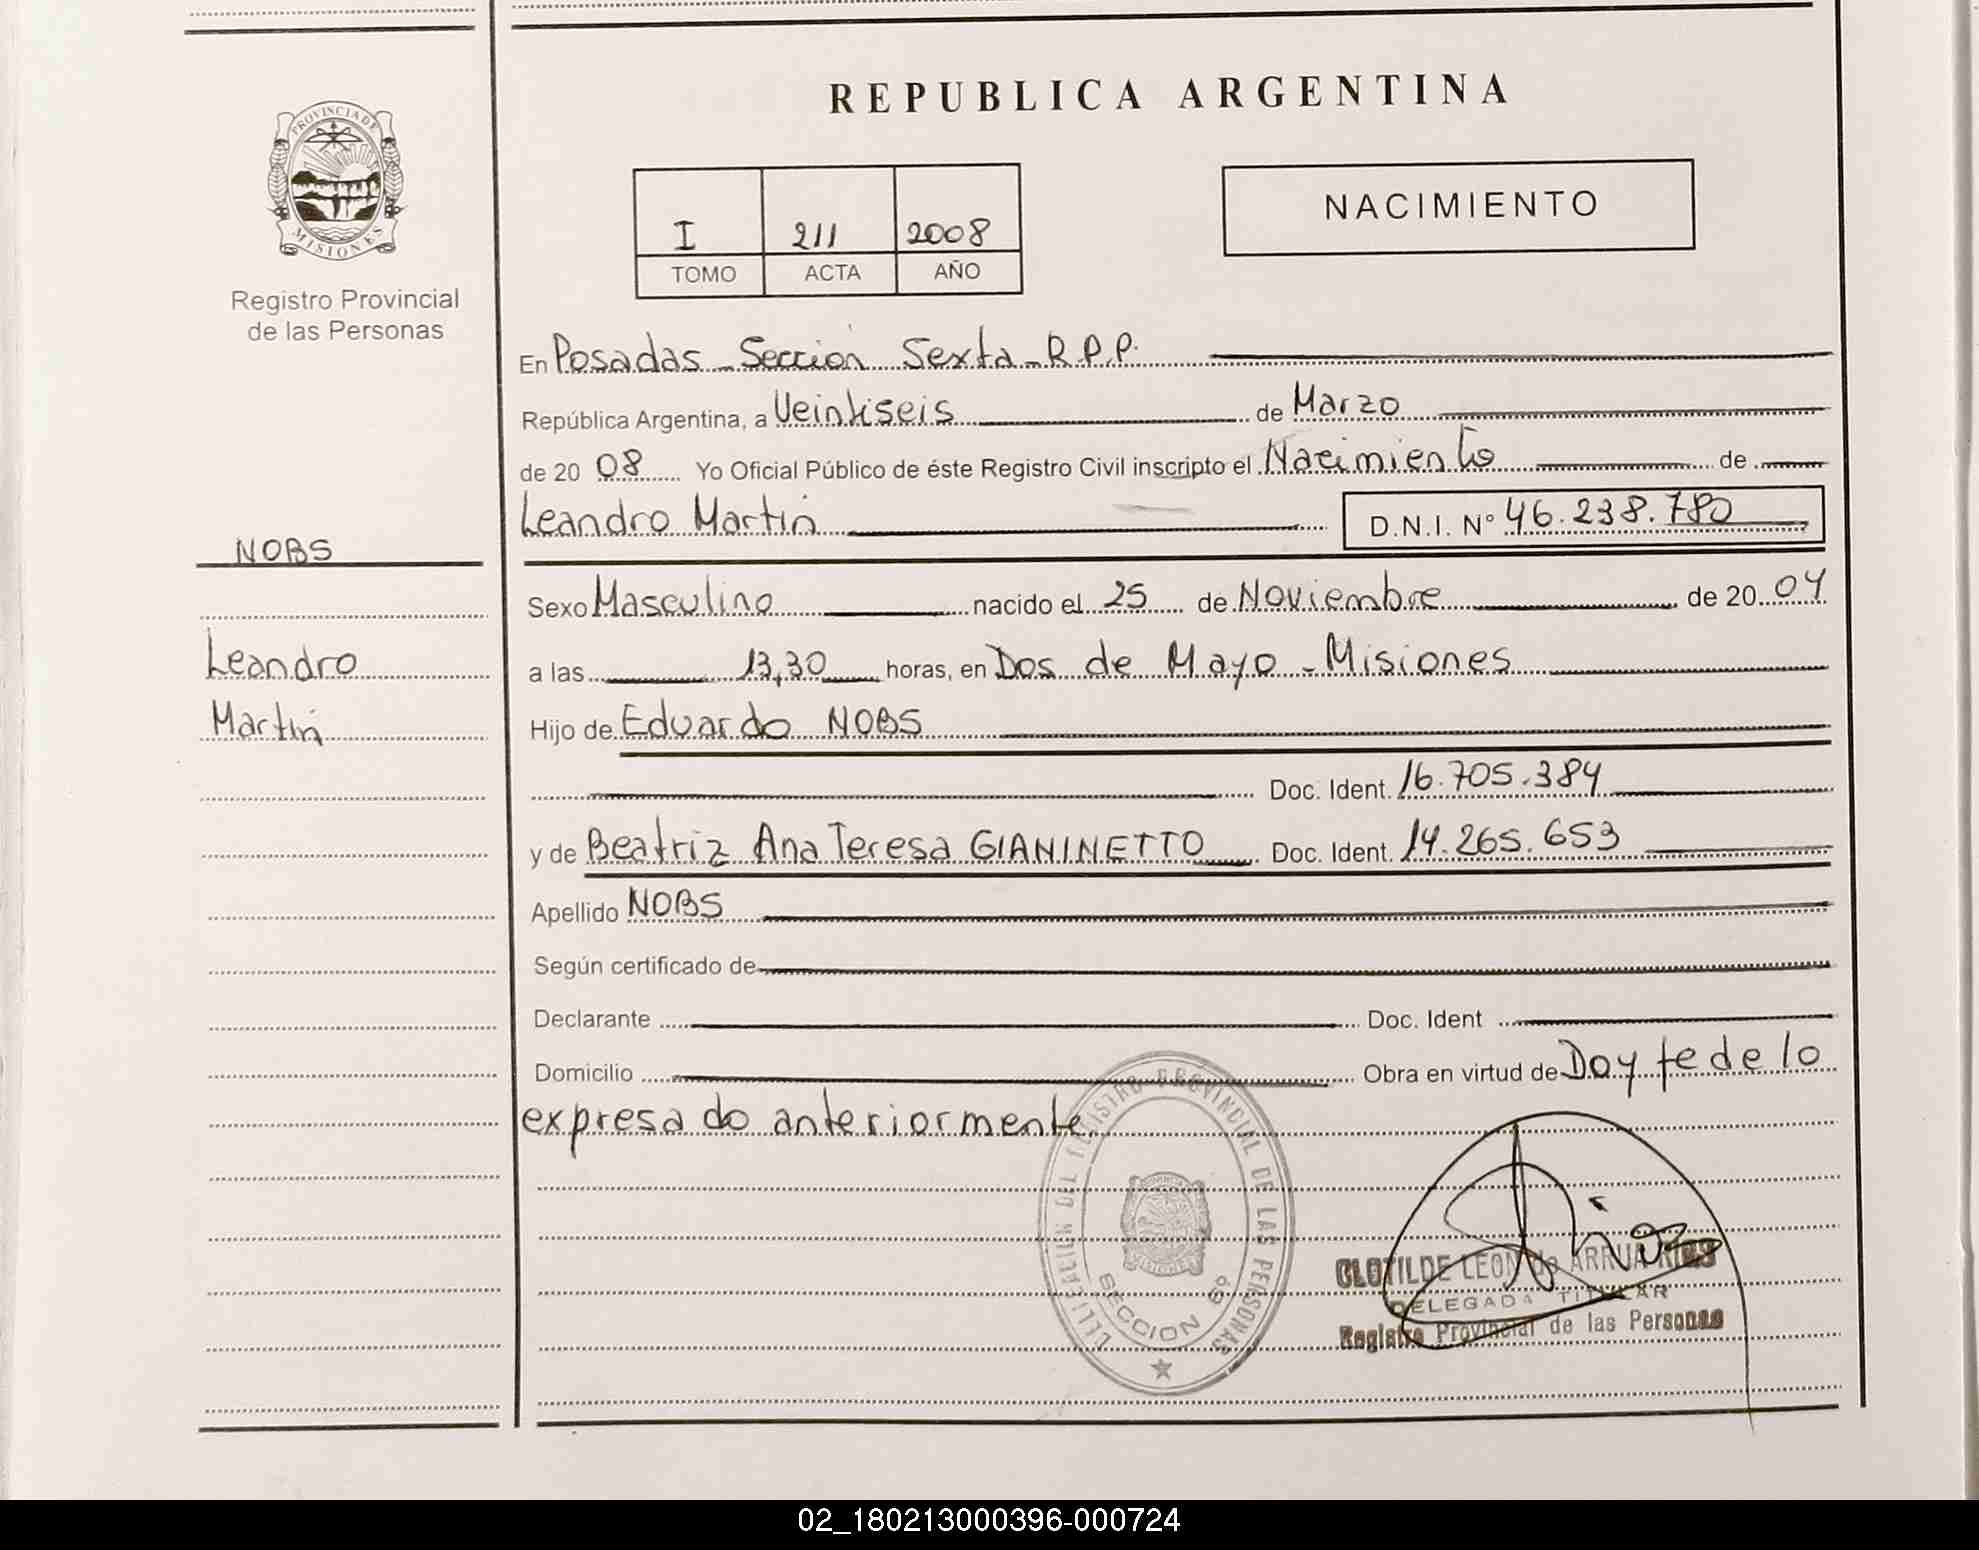 REPUBLICA ARGENTINA
PROVINCIA DE
MISIONES
Registro Provincial
de las Personas
NACIMIENTO
I 211 2008
TOMO ACTA AÑO
En Posadas - Sección Sexta - R.P.P.
República Argentina, a Veintiseis de Marzo
de 20 08 Yo Oficial Público de éste Registro Civil inscripto el Nacimiento de
Leandro Martin D.N.I. N° 46.238.780
NOBS
Sexo Masculino nacido el 25 de Noviembre de 20 04
Leandro
a las 13,30 horas, en Dos de Mayo - Misiones
Martin
Hijo de Eduardo NOBS
Doc. Ident. 16.705.384
y de Beatriz Ana Teresa GIANINETTO Doc. Ident. 14.265.653
Apellido NOBS
Según certificado de
Declarante Doc. Ident
Domicilio Obra en virtud de Doy fe de lo
expresado anteriormente.
REGISTRO PROVINCIAL DE LAS PERSONAS
SECCION 6º
CLOTILDE LEON de ARRUA
DELEGADA TITULAR
Registro Provincial de las Personas
02_180213000396-000724